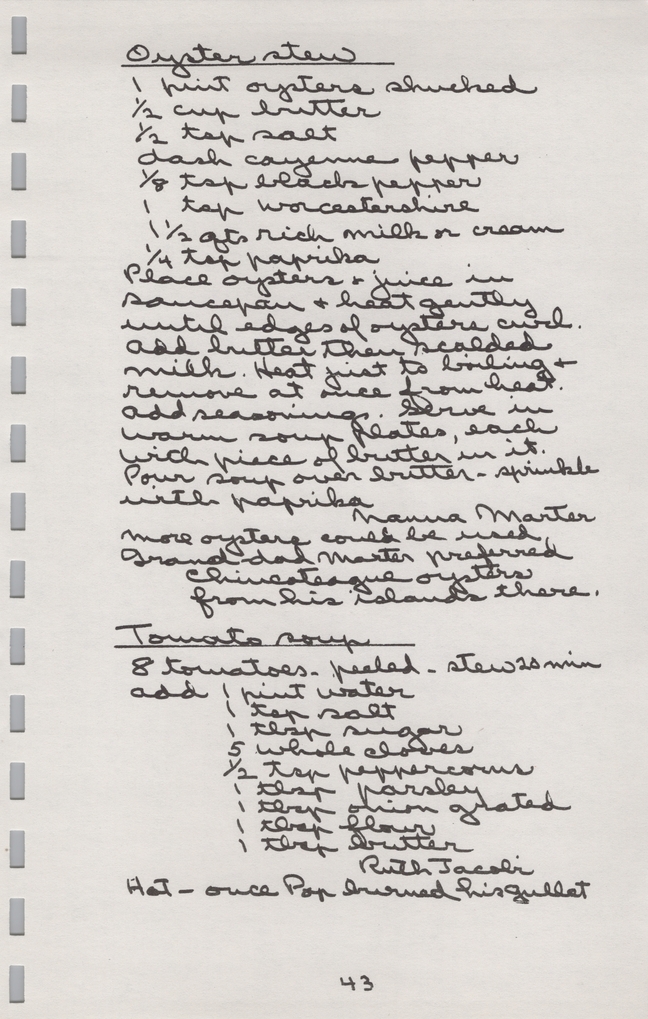 Oyster stew
1 pint oysters shucked
1/2 cup butter
1/2 tsp salt
dash cayenne pepper
1/8 tsp black pepper
1 tsp worcestershire
1 1/2 qts rich milk or cream
1/4 tsp paprika
Place oysters + juice in
saucepan + heat gently
until edges of oysters curl.
add butter then scalded
milk. Heat just to boiling +
remove at once from heat.
add seasonings. Serve in
warm soup plates, each
with piece of butter in it.
Pour soup over butter - sprinkle
with paprika
Nanna Marter
more oysters could be used,
Grand-dad Marter preferred
Chincoteague oysters
from his islands there.
Tomato soup
8 tomatoes - peeled - stew 20 min
add 1 pint water
1 tsp salt
1 tbsp sugar
5 whole cloves
1/2 tsp peppercorns
1 tbsp parsley
1 tbsp onion grated
1 tbsp flour
1 tbsp butter
Ruth Jacobi
Hot - once Pop burned his gullet
43